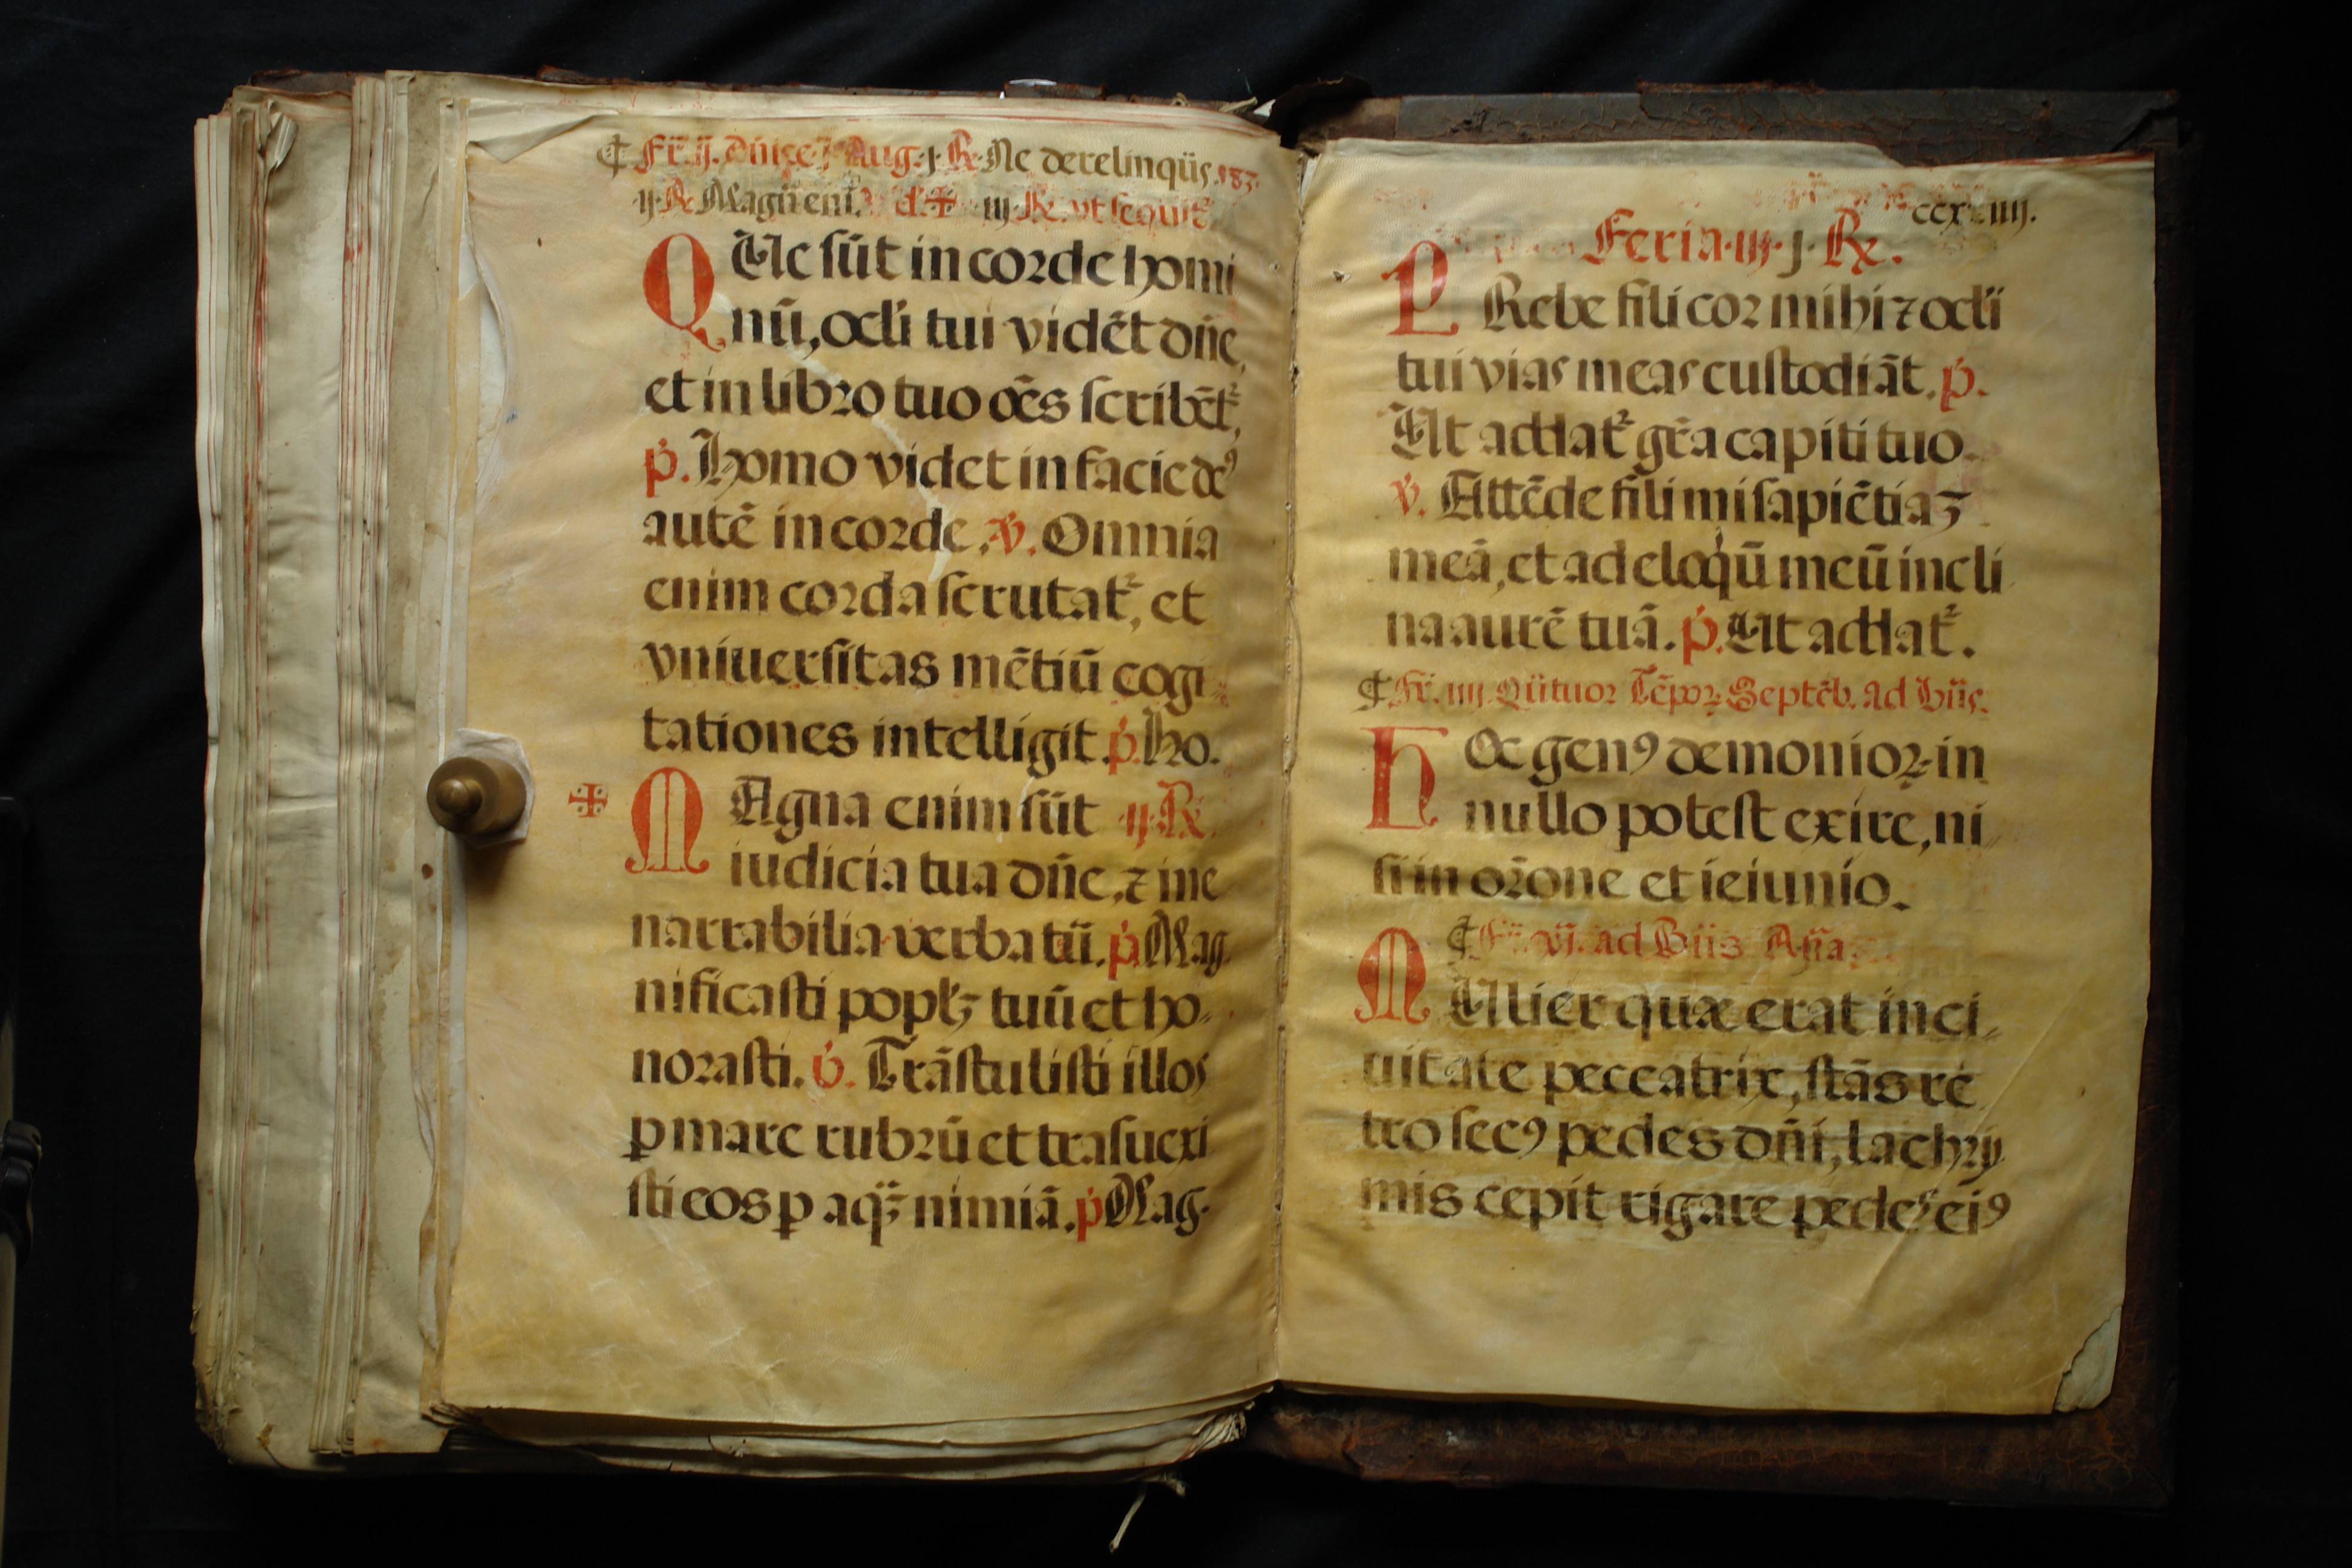 ¶ Fr̃. ij. Aug. j. ℟. Ne derelinqũs. 183.
ij. ℟. Magñ eni. d. ✠ iij. ℟. vt sequit᷑
QUe sũt in corde homi
nũ, ocłi tui vidẽt dñe,
et in libro tuo oẽs scribẽt᷑,
p̃. Homo videt in facie deꝰ
autẽ in corde. ℣. Omnia
enim corda scrutat᷑, et
vniuersitas mẽtiũ cogi
tationes intelligit. p̃. Ho.
✠ MAgna enim sũt ij. ℟.
iudicia tua dñe, ⁊ ine
narrabilia verba tũ. p̃. Mag
nificasti poplꝫ tuũ et ho-
norasti. ℣. Trãstulisti illos
ꝑ mare rubrũ et trãsuexi
sti eos ꝑ aqꝫ̃ nimiã. p̃ Mag.
Feria. iij. j. ℟.
PRebe fili cor mihi ⁊ ocłi
tui vias meas custodiãt. p̃.
Ut addat᷑ grã capiti tuo.
℣. Attẽde fili mi sapiẽtiaꝫ
meã, et ad eloq̇ũ meũ incli
na aurẽ tuã. p̃. Ut addat᷑.
¶ Fr̃. iiij. Qũtuor Tẽpoꝝ Septẽb. ad Bñs.
HOc genꝰ demonioꝝ in
nullo potest exire, ni
si in orõne et ieiunio.
¶ Fr̃. vj. ad Bñs Añã.
MUlier quæ erat in ci-
uitate peccatrix, stãs re
tro secꝰ pedes dñi, lachry
mis cepit rigare pedes eiꝰ